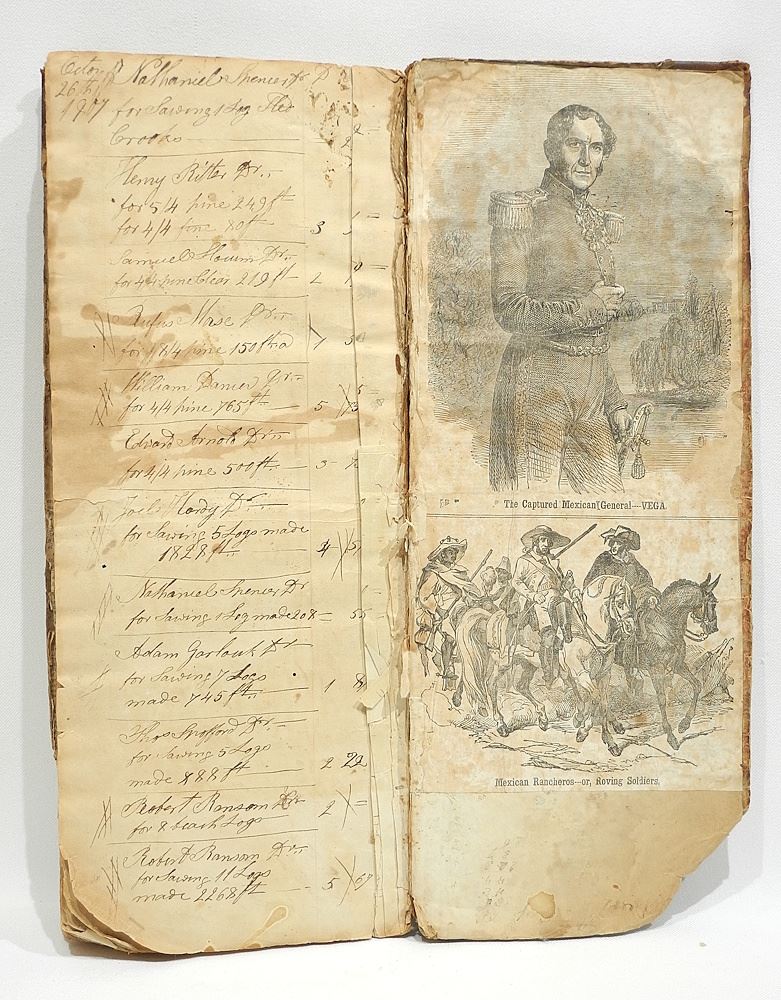 26th
Nathaniel Spencer Dr
for Sawing 1 Log
Crooks
Henry Ritter Dr
for 5/4 pine 249 ft
for 4/4 pine 80 ft 3
Samuel Dr
for 4/4 pine Clear 219 ft 2
Rufus Dr
for pine 150 ft 1
William Dr
for 4/4 pine 765 ft 5
Edward Arnold Dr
for 4/4 pine 500 ft 3
Joel Hardy Dr
for Sawing 5 Logs made
1828 ft 4
Nathaniel Spencer Dr
for Sawing 1 Log made 208 55
Adam Dr
for Sawing 7 Logs
made 745 ft 1
Thos Spofford Dr
for Sawing 5 Logs
made 888 ft 2 22
Robert Ransom Dr
for 8 beach Logs 2
Robert Ransom Dr
for Sawing 11 Logs
made 2268 ft 5 67
The Captured Mexican General—VEGA.
Mexican Rancheros—or, Roving Soldiers.